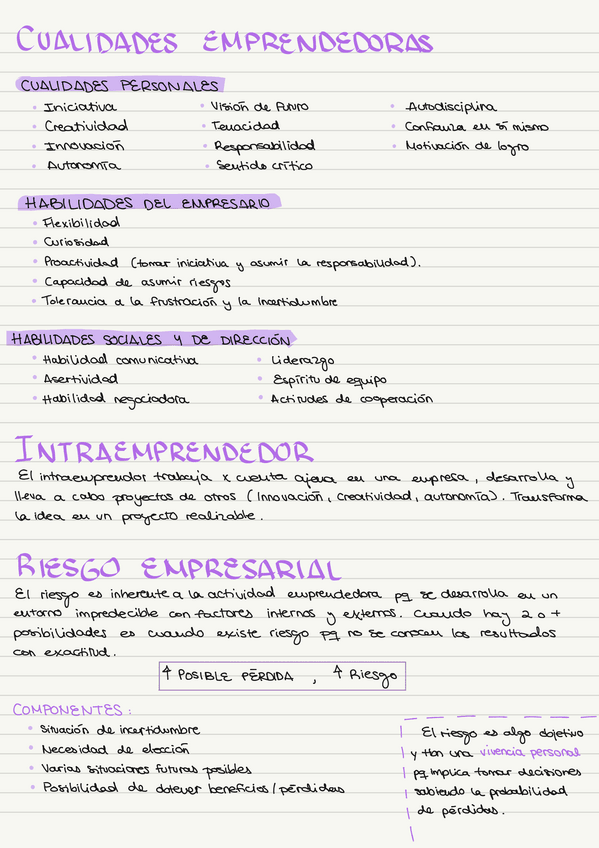 CUALIDADES EMPRENDEDORAS
CUALIDADES PERSONALES
• Iniciativa
• Creatividad
• Innovación
• Autonomía
• Visión de futuro
• Tenacidad
• Responsabilidad
• Sentido crítico
• Autodisciplina
• Confianza en sí mismo
• Motivación de logro
HABILIDADES DEL EMPRESARIO
• Flexibilidad
• Curiosidad
• Proactividad (tomar iniciativa y asumir la responsabilidad).
• Capacidad de asumir riesgos
• Tolerancia a la frustración y la incertidumbre
HABILIDADES SOCIALES Y DE DIRECCIÓN
• Habilidad comunicativa
• Asertividad
• Habilidad negociadora
• Liderazgo
• Espíritu de equipo
• Actitudes de cooperación
INTRAEMPRENDEDOR
El intraemprendor trabaja x cuenta ajena en una empresa, desarrolla y
lleva a cabo proyectos de otros (innovación, creatividad, autonomía). Transforma
la idea en un proyecto realizable.
RIESGO EMPRESARIAL
El riesgo es inherente a la actividad emprendedora pq se desarrolla en un
entorno impredecible con factores internos y externos. Cuando hay 2 o +
posibilidades es cuando existe riesgo pq no se conocen los resultados
con exactitud.
↑ POSIBLE PÉRDIDA , ↑ Riesgo
COMPONENTES:
• Situación de incertidumbre
• Necesidad de elección
• Varias situaciones futuras posibles
• Posibilidad de obtener beneficios/pérdidas
El riesgo es algo objetivo
y tb una vivencia personal
pq implica tomar decisiones
sabiendo la probabilidad
de pérdidas.